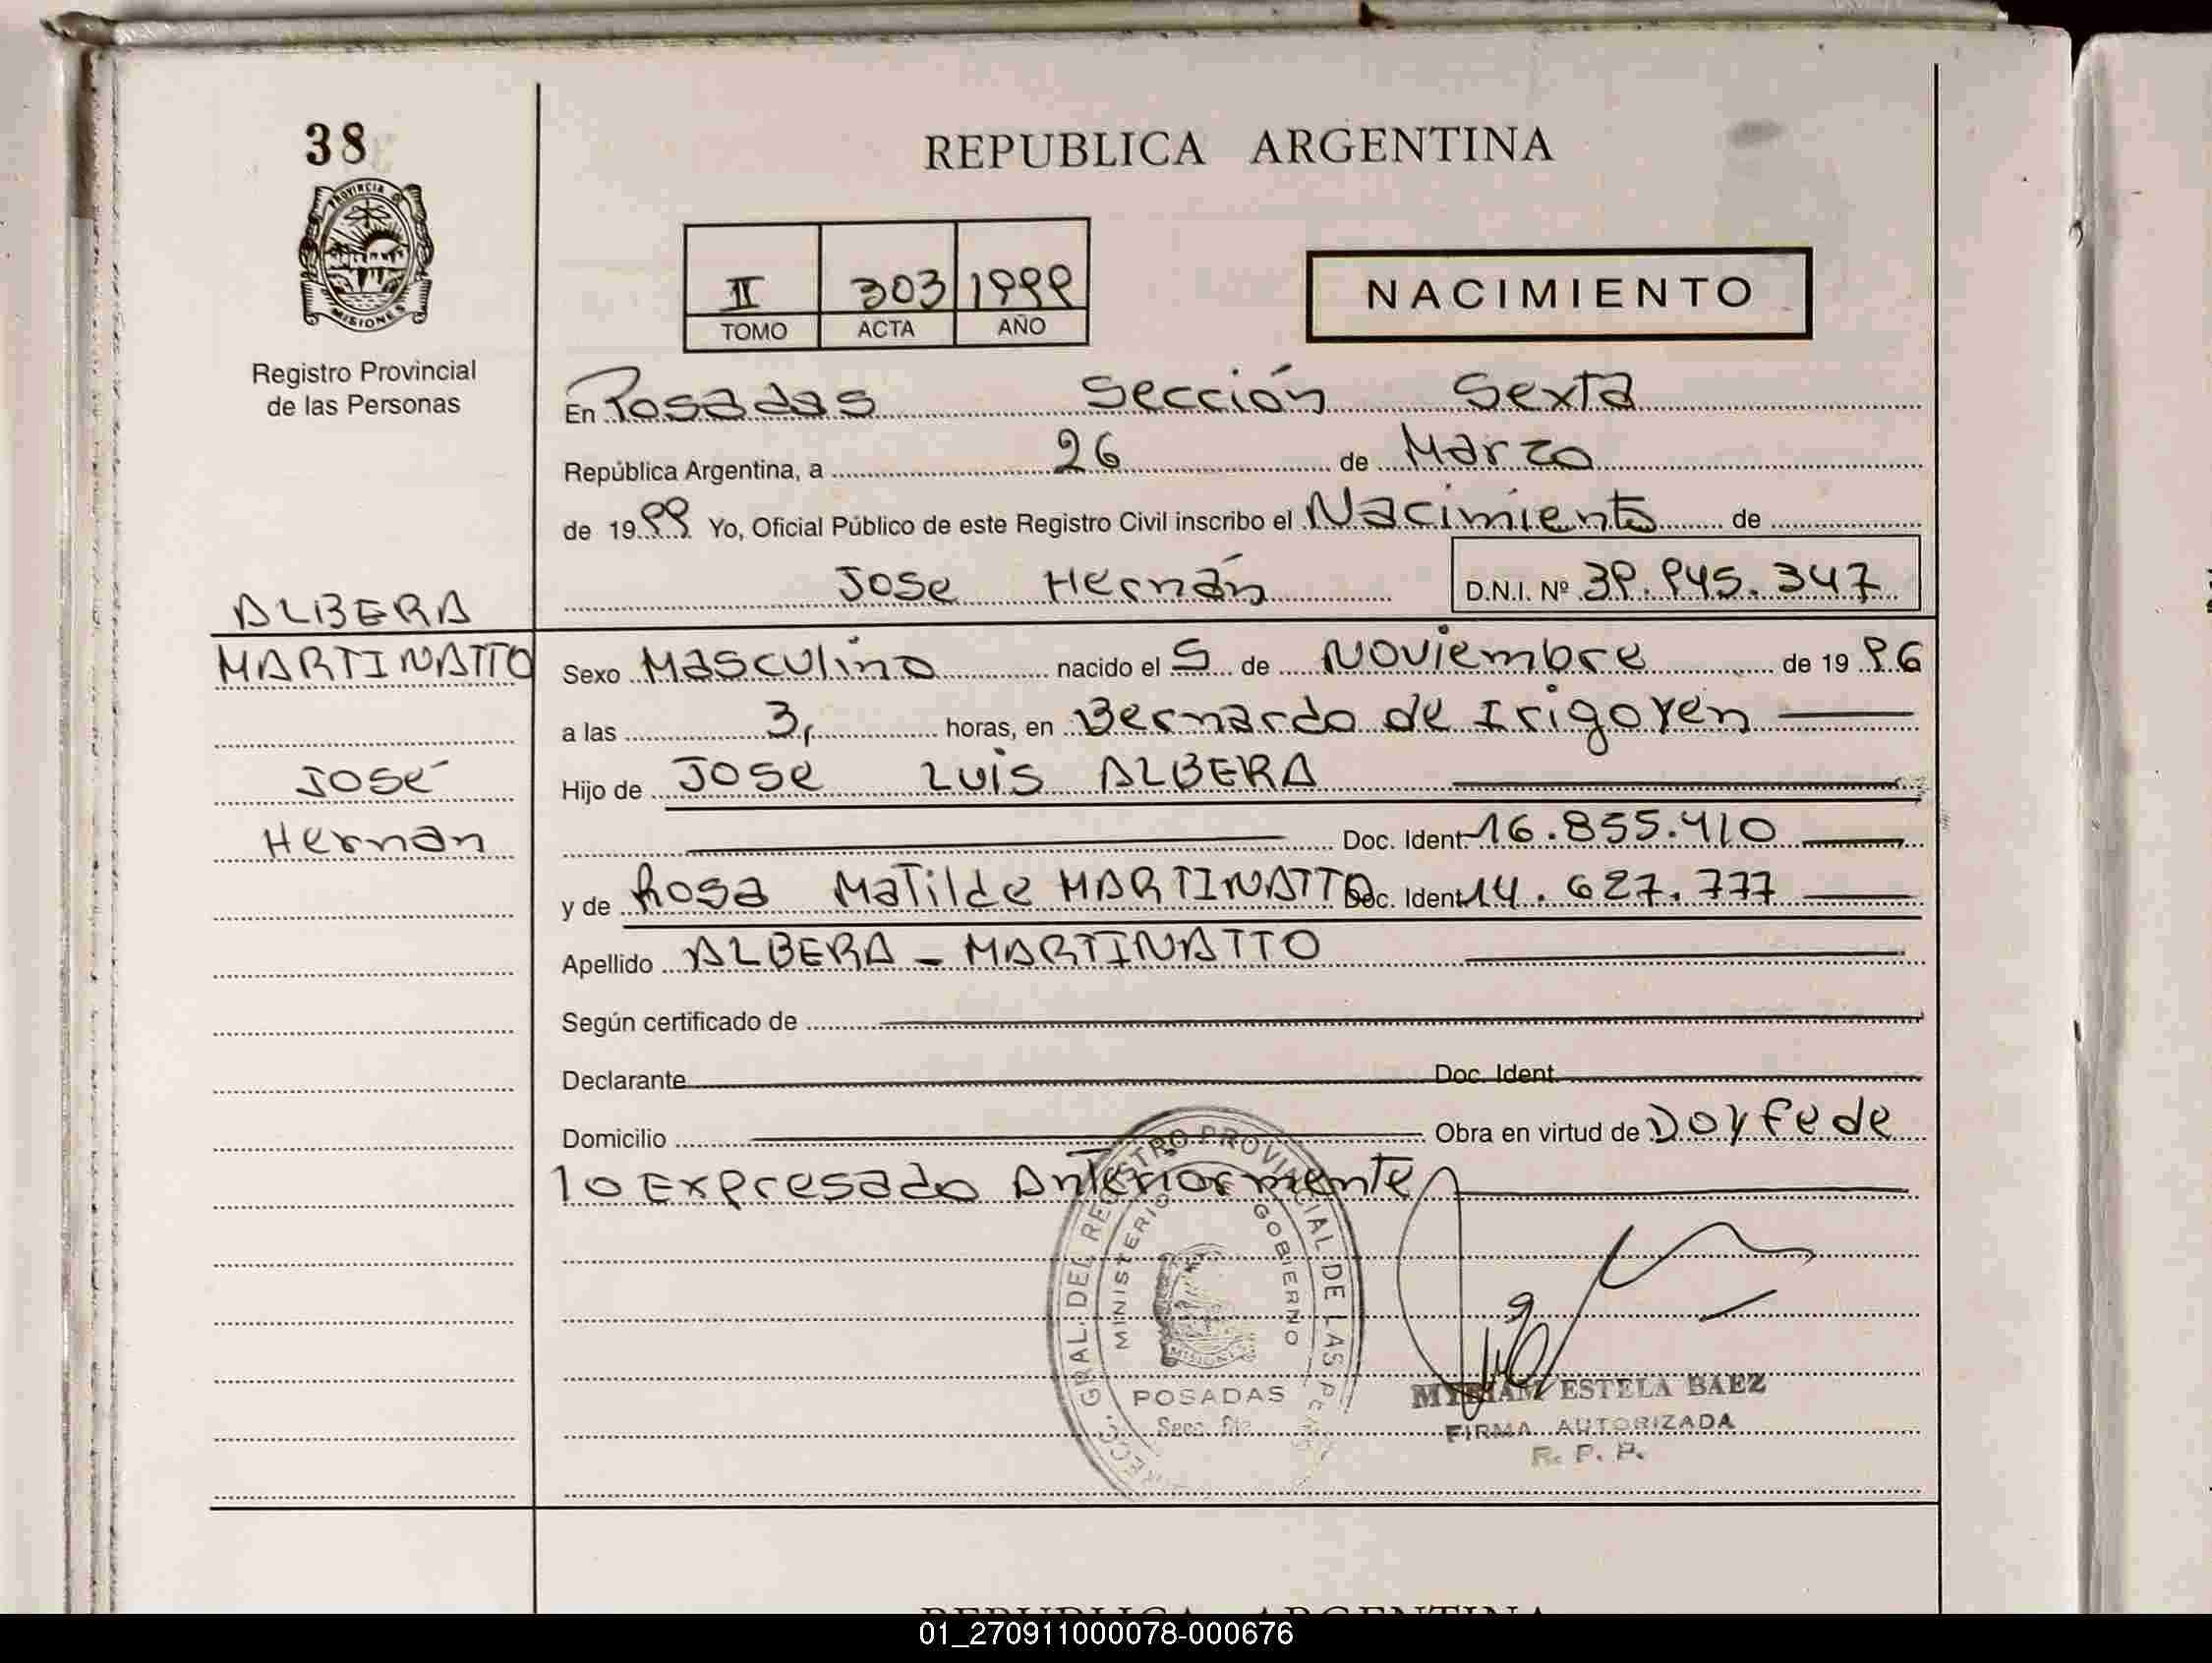 38
PROVINCIA DE
MISIONES
Registro Provincial
de las Personas
ALBERA
MARTINATTO
José
Hernan
REPUBLICA ARGENTINA
II 303 1999
TOMO ACTA AÑO
NACIMIENTO
En Posadas Sección Sexta
República Argentina, a 26 de Marzo
de 1999 Yo, Oficial Público de este Registro Civil inscribo el Nacimiento de
Jose Hernán D.N.I. Nº 39.945.347
Sexo Masculino nacido el 5 de Noviembre de 1996
a las 3, horas, en Bernardo de Irigoyen
Hijo de Jose Luis ALBERA
Doc. Ident. 16.855.410
y de Rosa Matilde MARTINATTO Doc. Ident. 14.627.777
Apellido ALBERA - MARTINATTO
Según certificado de
Declarante Doc. Ident.
Domicilio Obra en virtud de Doy fe de
lo Expresado Anteriormente
GRAL. DEL REGISTRO PROVINCIAL DE LAS
MINISTERIO GOBIERNO
MISIONES
POSADAS
Secc.
MYRIAM ESTELA BAEZ
FIRMA AUTORIZADA
R. P. P.
REPUBLICA ARGENTINA
01_270911000078-000676